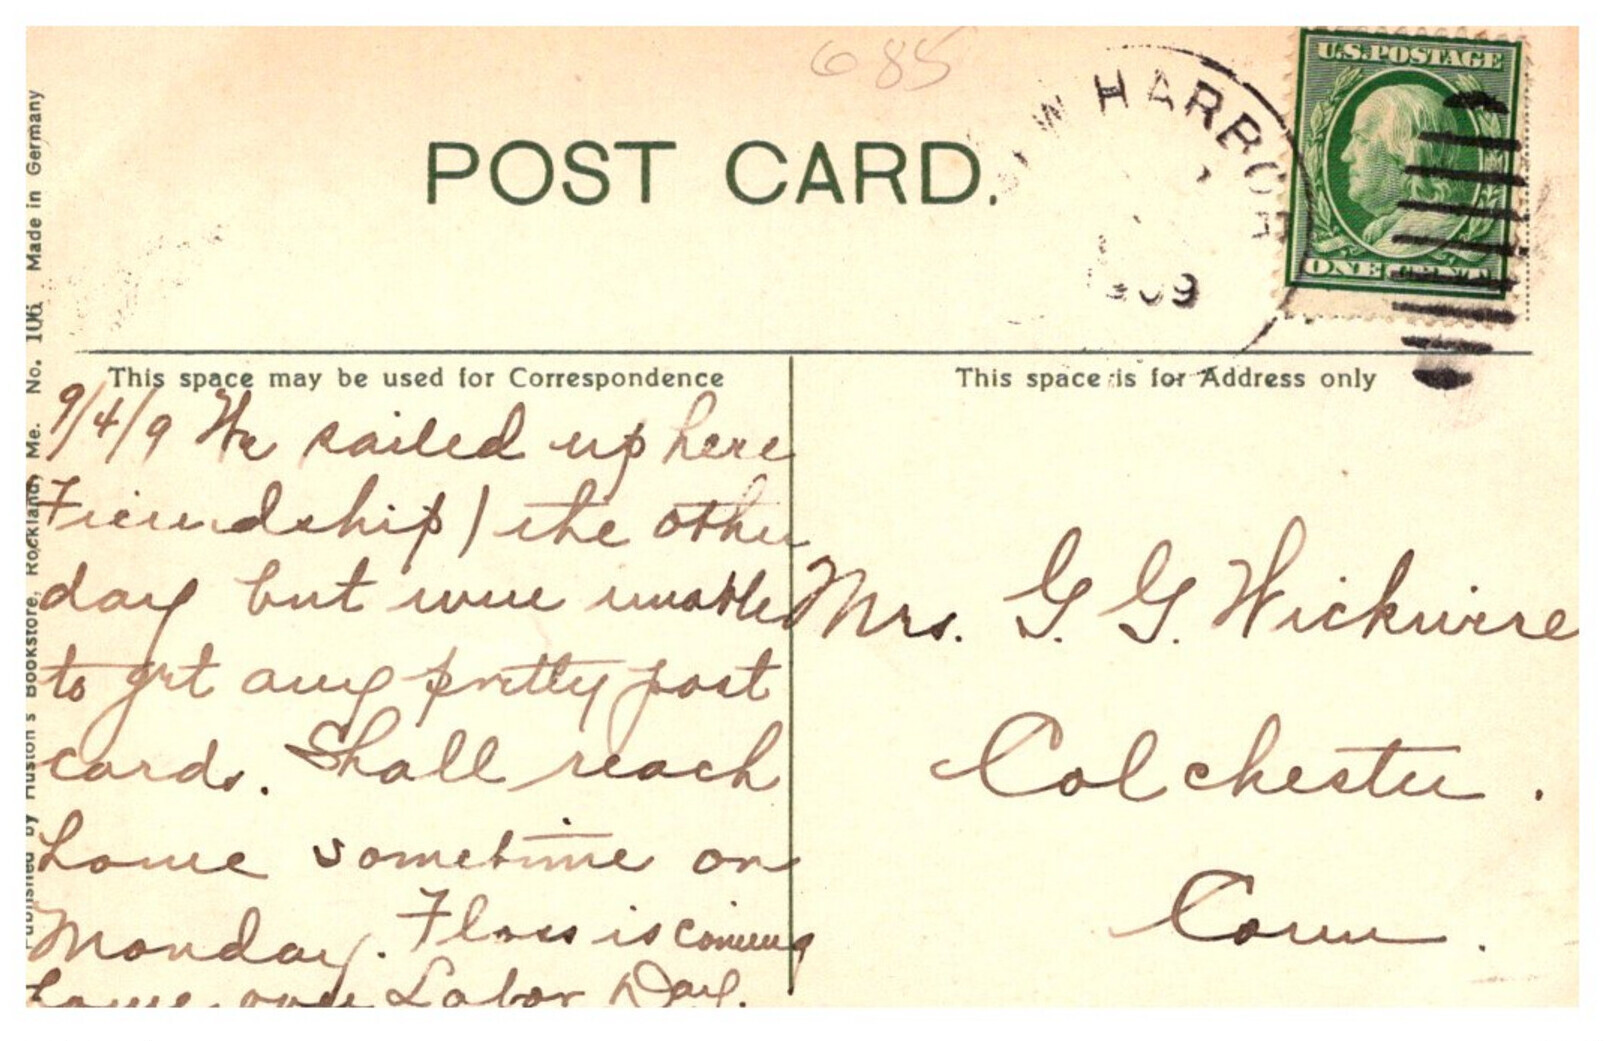 685
POST CARD.
W HARBOR
1909
U.S. POSTAGE
ONE CENT
This space may be used for Correspondence
This space is for Address only
9/4/9 We sailed up here
Friendship) the other
day but were unable
to get any pretty post
cards. Shall reach
home sometime on
Monday. Floss is coming
home over Labor Day.
Mrs. G. G. Wickwire
Colchester.
Conn.
Published by Huston's Bookstore, Rockland, Me. No. 106 Made in Germany